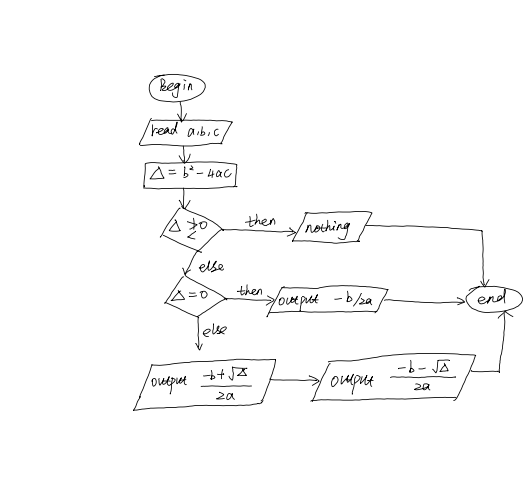 Begin
read a,b,c
Δ = b² - 4ac
Δ 0
then
nothing
else
Δ = 0
then
output -b/2a
end
else
output (-b+√Δ)/2a
output (-b-√Δ)/2a